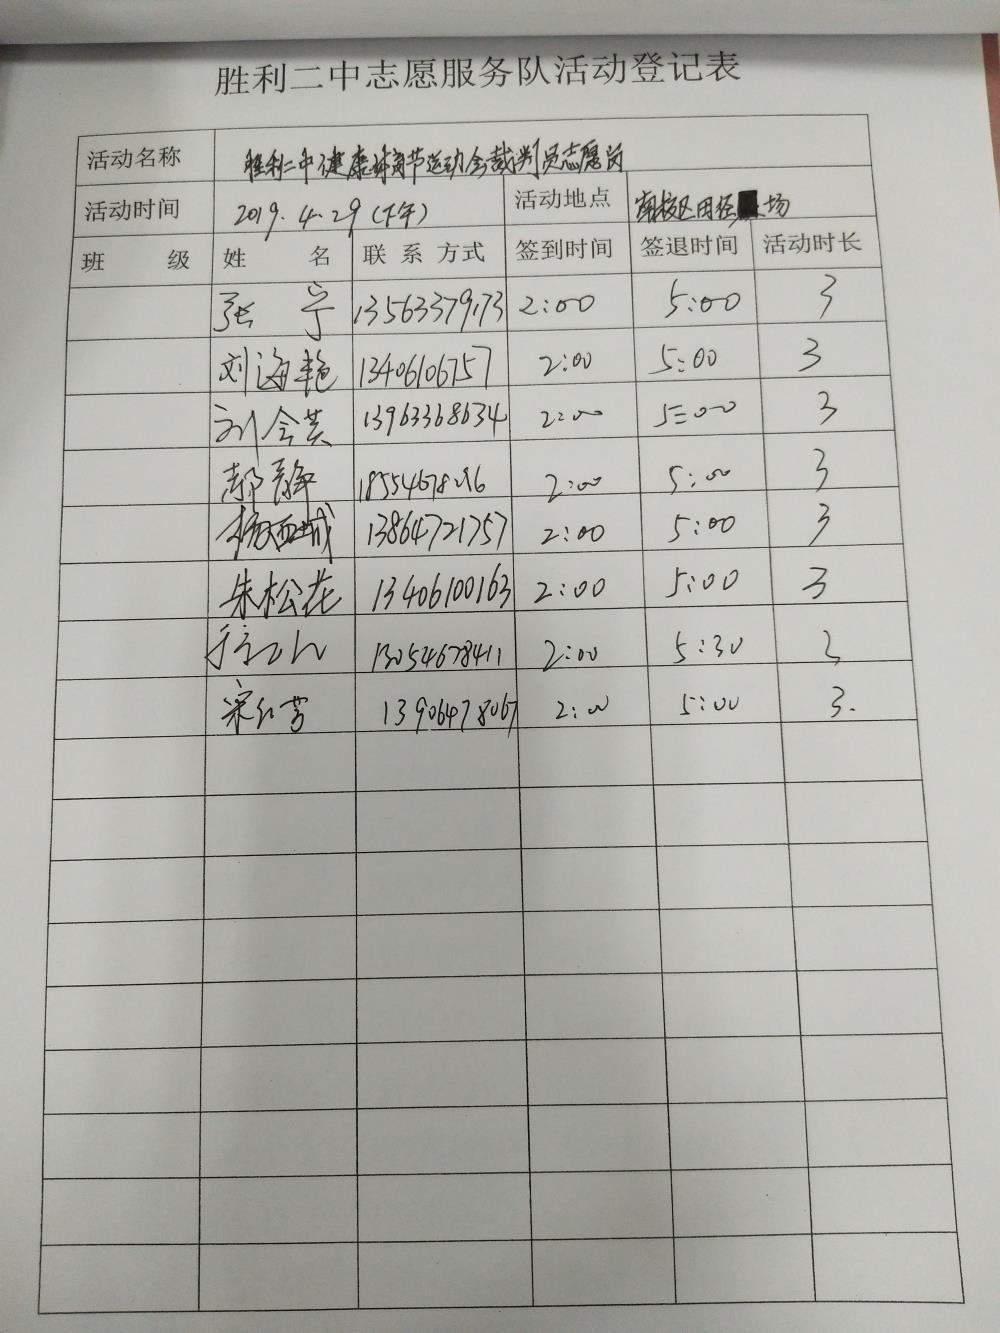 胜利二中志愿服务队活动登记表
活动名称 胜利二中健康体育节运动会裁判员志愿岗
活动时间 2019.4.29(下午) 活动地点 南校区田径场
班 级 姓 名 联 系 方式 签到时间 签退时间 活动时长
张宁 13563379173 2:00 5:00 3
刘海艳 13406106757 2:00 5:00 3
刘会芸 13963368634 2:00 5:00 3
郝静 2:00 5:00 3
杨西城 13864721757 2:00 5:00 3
朱松花 13406100163 2:00 5:00 3
13054678411 2:00 5:30 3
宋红芳 13906478067 2:00 5:00 3.